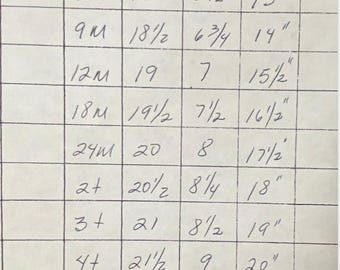 9m 18½ 6¾ 14"
12m 19 7 15½"
18m 19½ 7½ 16½"
24m 20 8 17½"
2t 20½ 8¼ 18"
3t 21 8½ 19"
4t 21½ 9 20"